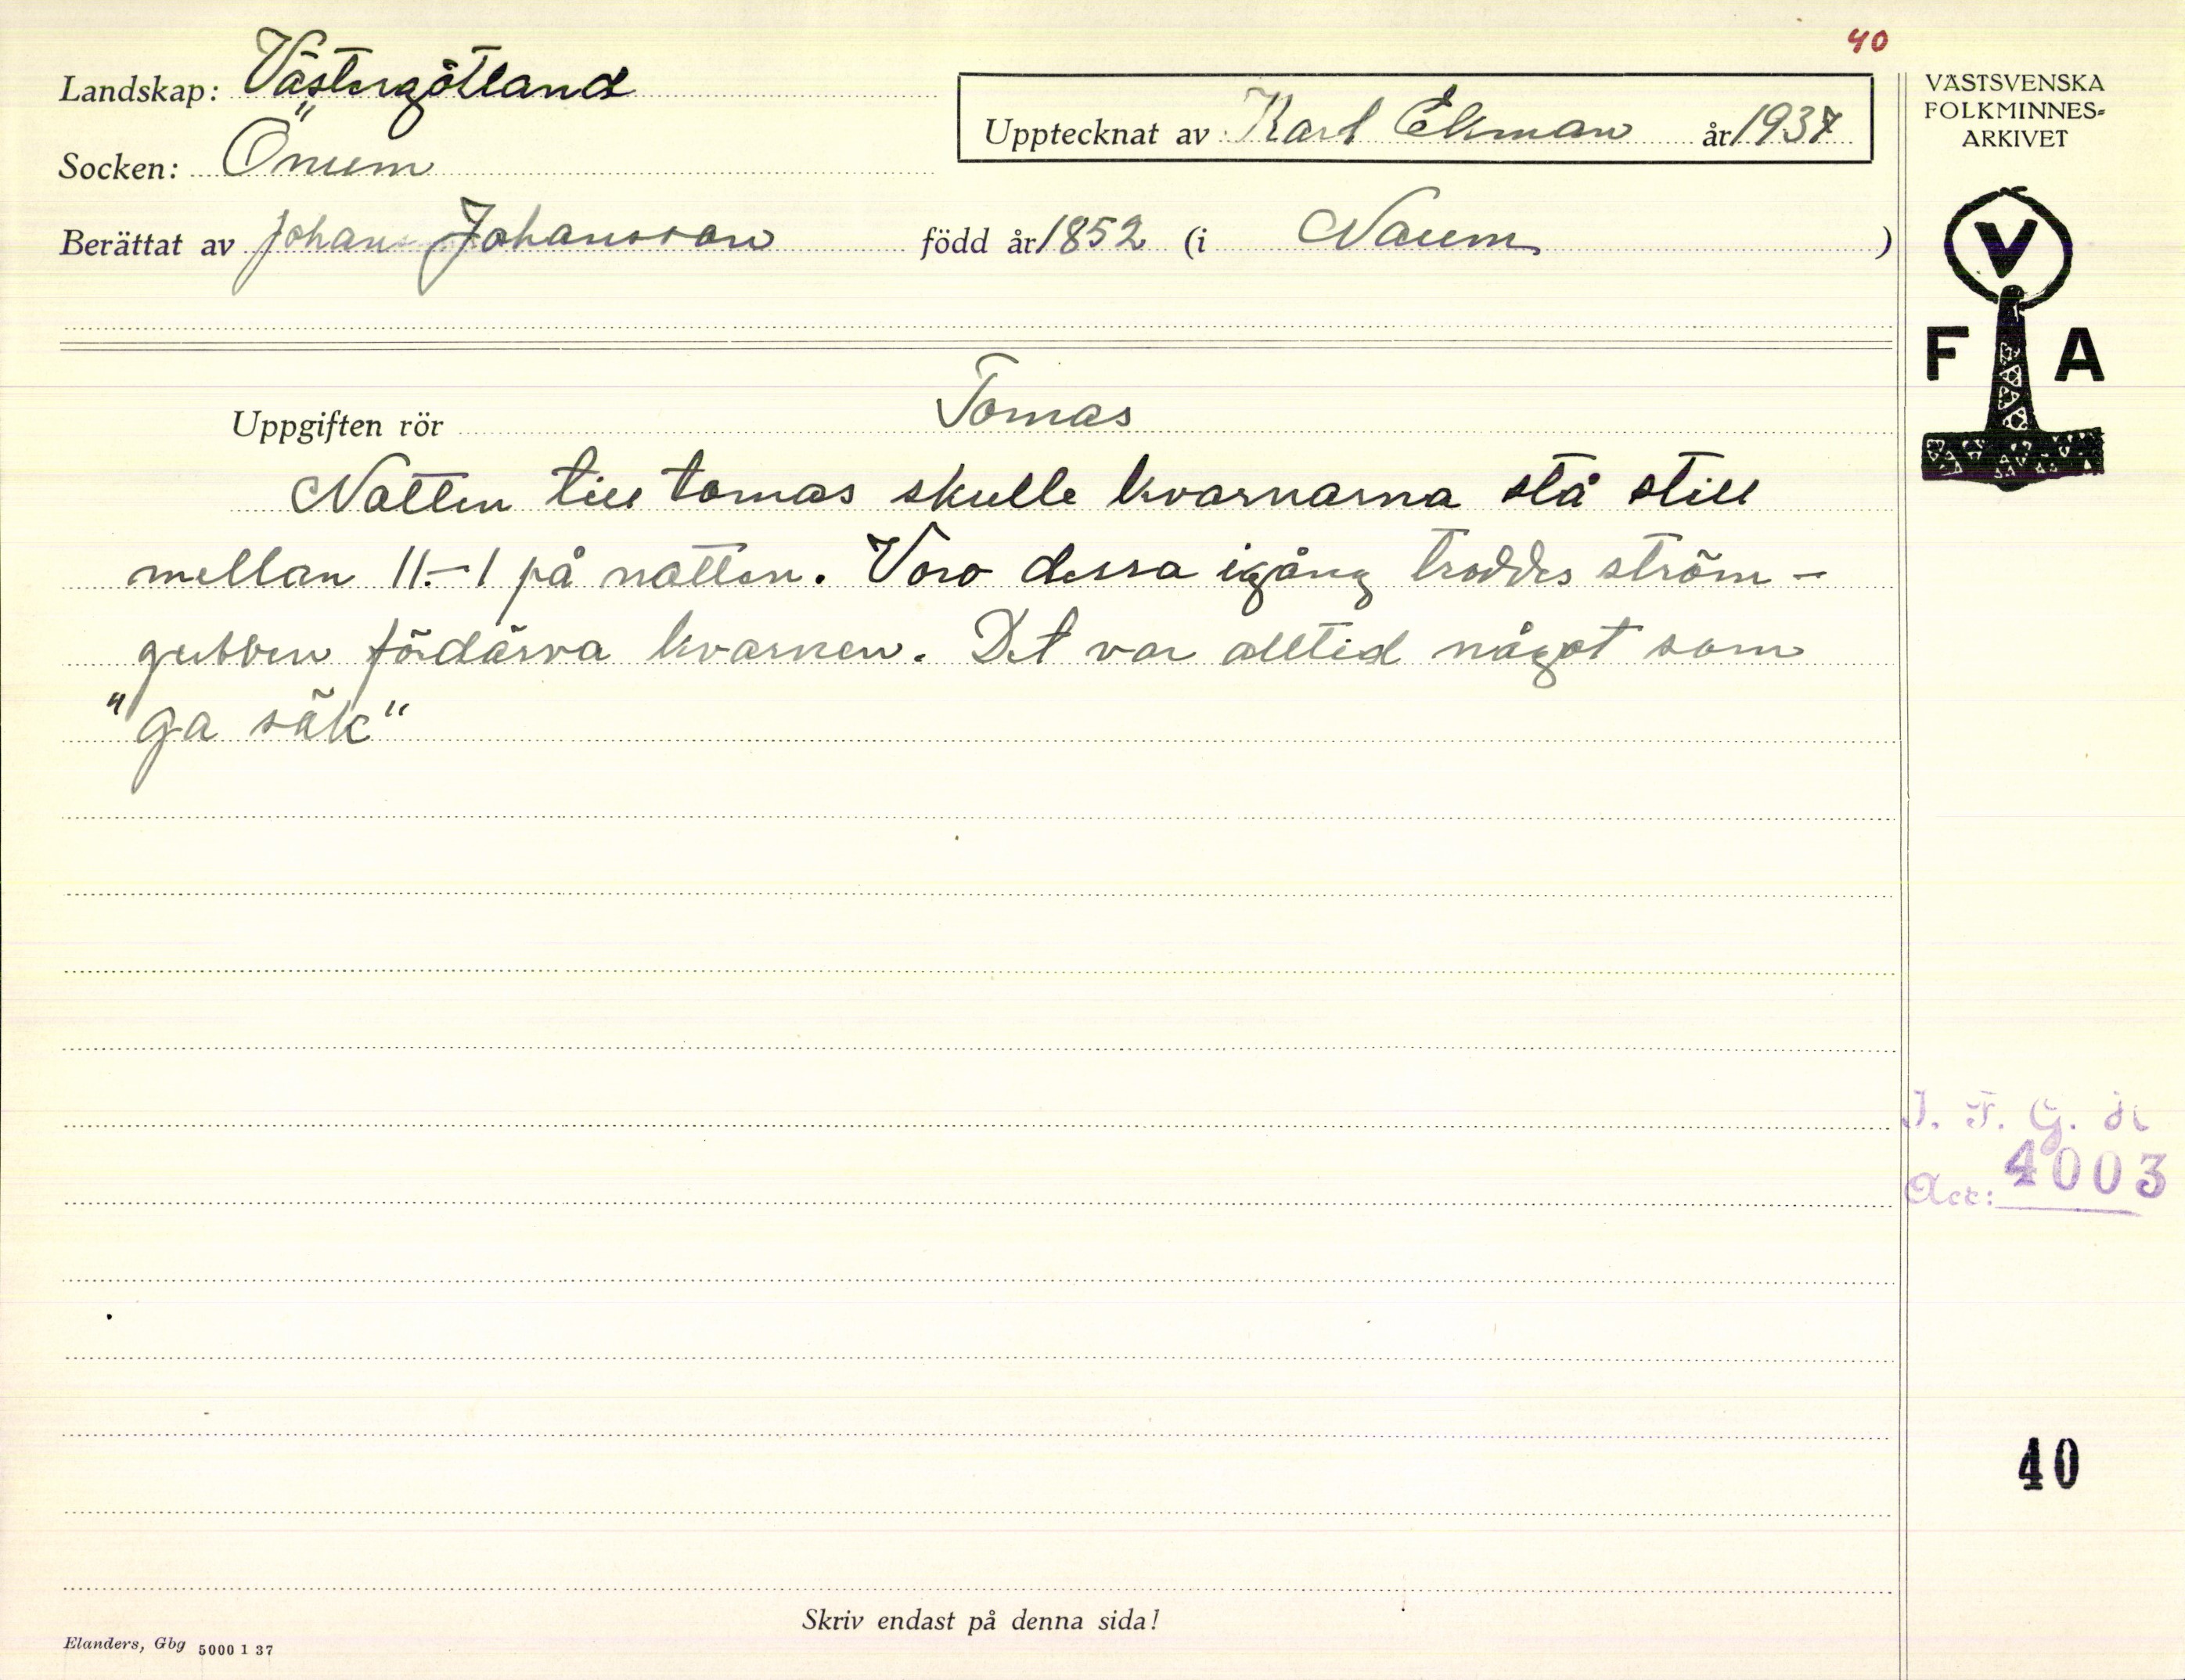 40
Landskap: Västergötland
Socken: Önum
Upptecknat av Karl Ekman år 1937
Berättat av Johan Johansson född år 1852 (i Naum)
VÄSTSVENSKA
FOLKMINNES-
ARKIVET
V
F A
Uppgiften rör Tomas
Natten till tomas skulle kvarnarna stå still
mellan 11.-1 på natten. Voro dessa igång troddes ström-
gubben fördärva kvarnen. Det var alltid något som
"ga säk"
I. F. G. H
Acc: 4003
40
Skriv endast på denna sida!
Elanders, Gbg 5000 1 37